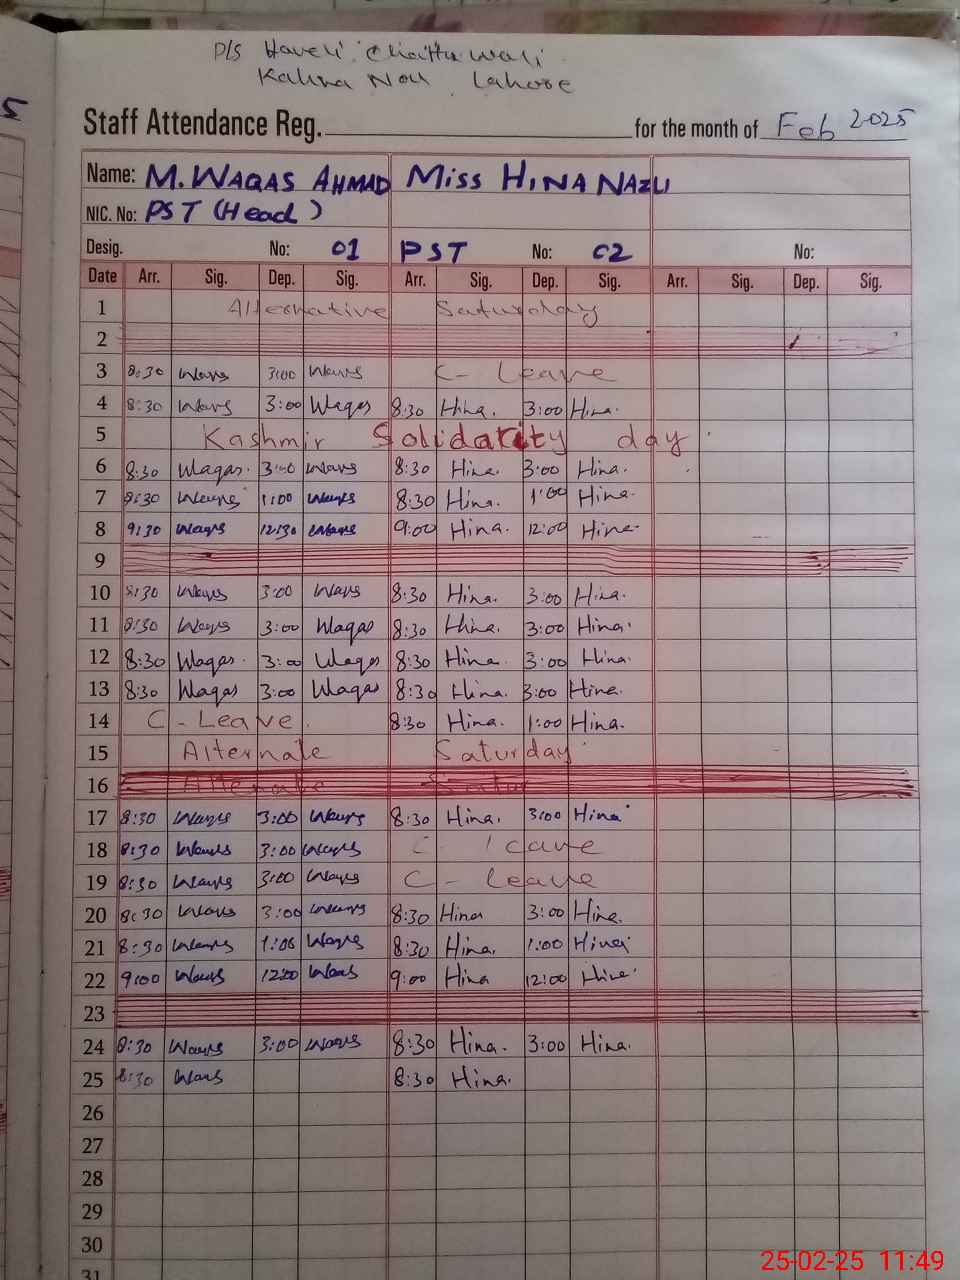 P/S Haveli Chattu Wali
Kahna Nou Lahore
5
Staff Attendance Reg. for the month of Feb 2025
Name: M. WAQAS AHMAD MISS HINA NAZLI
NIC. No: PST (Head)
Desig. No: 01 PST No: 02 No:
Date Arr. Sig. Dep. Sig. Arr. Sig. Dep. Sig. Arr. Sig. Dep. Sig.
1 Alternative Saturday
2
3 8:30 Waqas 3:00 Waqas C- Leave
4 8:30 Waqas 3:00 Waqas 8:30 Hina. 3:00 Hina.
5 Kashmir Solidarity day
6 8:30 Waqas. 3:00 Waqas 8:30 Hina. 3:00 Hina.
7 8:30 Waqas 1:00 Waqas 8:30 Hina. 1:00 Hina.
8 9:30 Waqas 12:30 Waqas 9:00 Hina. 12:00 Hina.
9
10 8:30 Waqas 3:00 Waqas 8:30 Hina. 3:00 Hina.
11 8:30 Waqas 3:00 Waqas 8:30 Hina. 3:00 Hina.
12 8:30 Waqas. 3:00 Waqas 8:30 Hina. 3:00 Hina.
13 8:30 Waqas 3:00 Waqas 8:30 Hina. 3:00 Hina.
14 C - Leave. 8:30 Hina. 1:00 Hina.
15 Alternate Saturday
16 Alternate Satur
17 8:30 Waqas 3:00 Waqas 8:30 Hina. 3:00 Hina
18 8:30 Waqas 3:00 Waqas C. Leave
19 8:30 Waqas 3:00 Waqas C- Leave
20 8:30 Waqas 3:00 Waqas 8:30 Hina 3:00 Hina.
21 8:30 Waqas 1:00 Waqas 8:30 Hina. 1:00 Hina
22 9:00 Waqas 12:00 Waqas 9:00 Hina 12:00 Hina
23
24 8:30 Waqas 3:00 Waqas 8:30 Hina. 3:00 Hina.
25 8:30 Waqas 8:30 Hina.
26
27
28
29
30
31
25-02-25 11:49